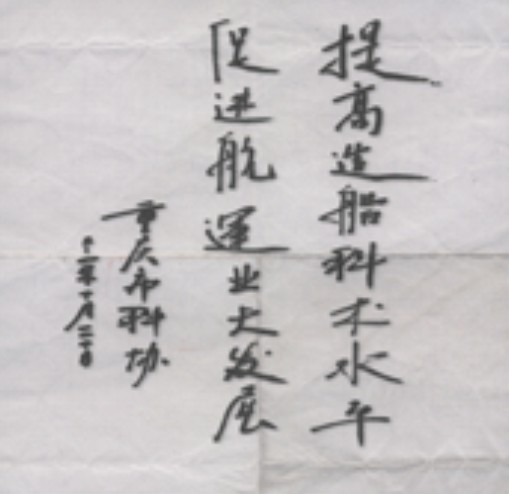 提高造船科术水平
促进航运业大发展
重庆市科协
十月二十日